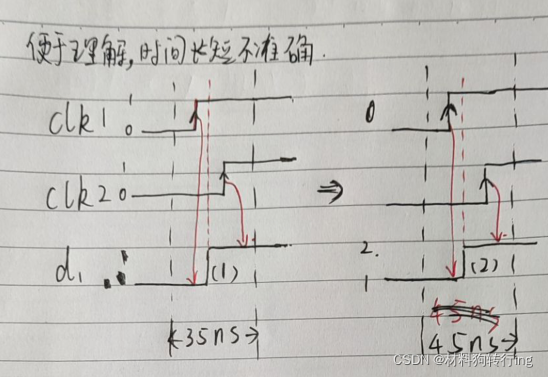 便于理解,时间长短不准确.
clk1 1 0
0
clk2 1 0
⇒
d1
(1)
2.
1
(2)
35ns
45ns
45ns
CSDN @材料狗转行ing